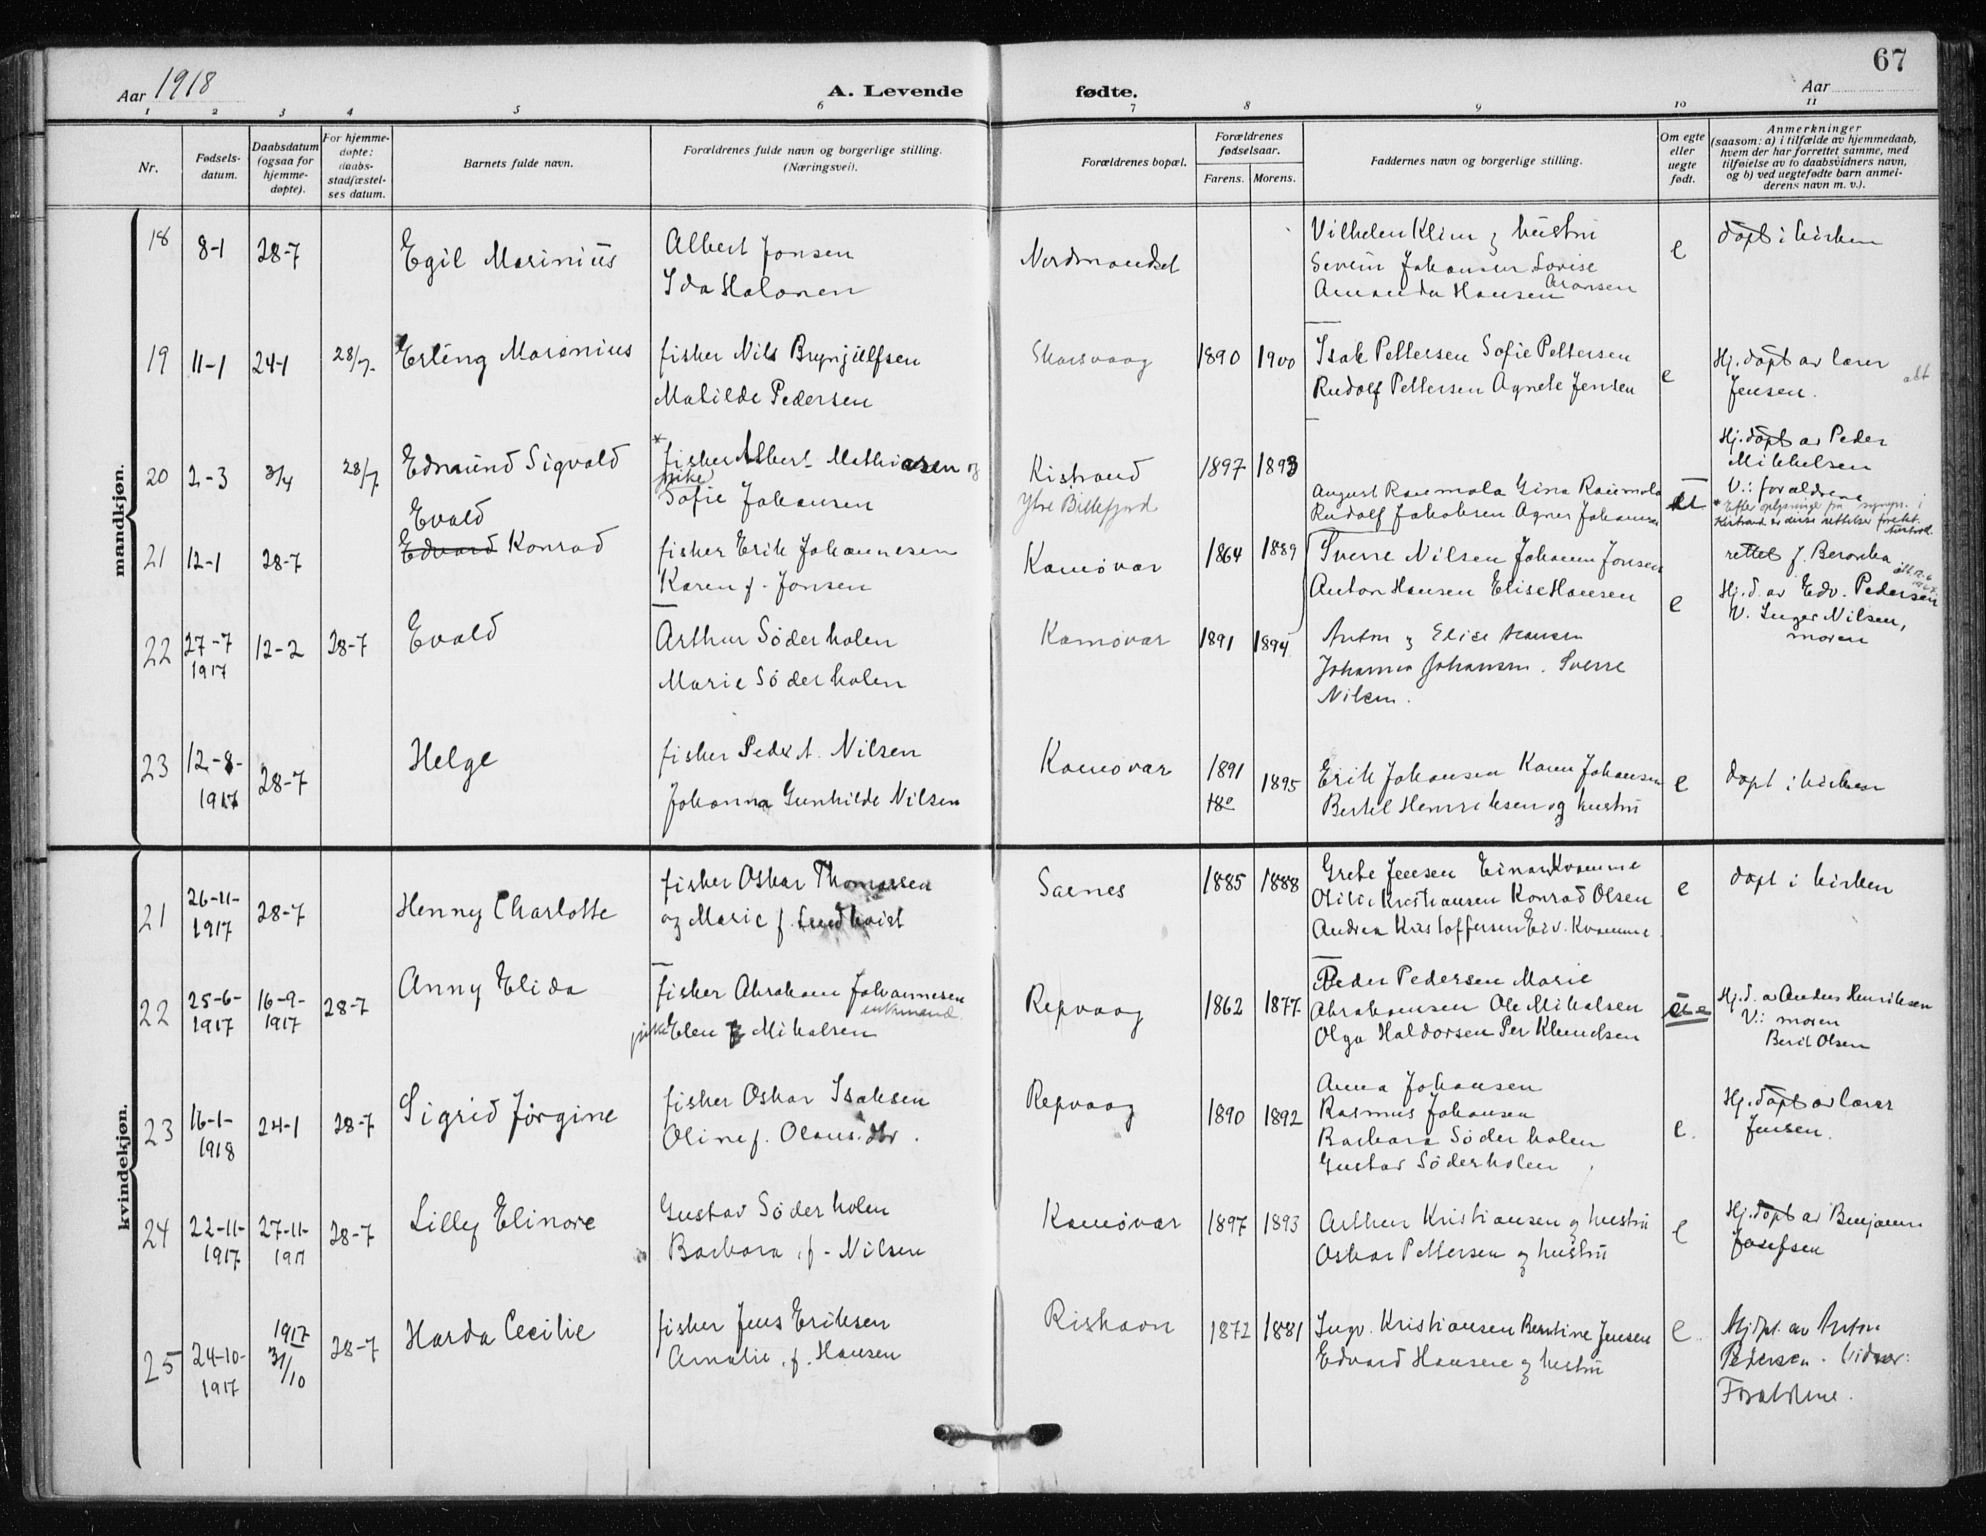 67
Aar 1918
A. Levende fødte.
Aar
1 2 3 4 5 6 7 8 9 10 11
Nr.
Fødsels-
datum.
Daabsdatum
(ogsaa for
hjemme-
døpte).
For hjemme-
døpte:
daabs-
stadfæstel-
ses datum.
Barnets fulde navn.
Forældrenes fulde navn og borgerlige stilling.
(Næringsvei).
Forældrenes bopæl.
Forældrenes
fødselsaar.
Farens. Morens.
Faddernes navn og borgerlige stilling.
Om egte
eller
uegte
født.
Anmerkninger
(saasom: a) i tilfælde av hjemmedaab,
hvem der har forrettet samme, med
tilføielse av to daabsvidners navn,
og b) ved uegtefødte barn anmel-
derens navn m. v.).
mandkjøn.
18 8-1 28-7 Egil Marinius
Albert Jonsen
Ida Halonen
Nordmandset
Vilhelm Klim og hustru
Severin Johansen Lovise
Aronsen
Amanda Hansen
e
døpt i kirken
19 11-1 24-1 28/7. Erling Marenius
fisher Nils Brynjulfsen
Matilde Pedersen
Skarsvaag 1890 1900
Isak Pettersen Sofie Pettersen
Rudolf Pettersen Agnete Jensen
e
Hj. døpt av lærer
Jensen.
20 2-3 3/4 28/7 Edmund Sigvald
* fisher Albert Mathiasen og
pike
Sofie Johansen
Kistrand 1897 1893
Ytre Billefjord
August Raumala Gina Raumala
Rudolf Jakobsen Agnes Johansen
Hj. døpt av Peder
Mikkelsen
V.: forældrene
* Efter oplysninge fra sogpr. i
Kistrand er disse rettelser foretat.
21 12-1 28-7 Evald
Edvard Konrad
fisher Erik Johannesen
Karen f. Jonsen
Kamøvær 1864 1889
Sverre Nilsen Johanne Jonsen
Anton Hansen Elise Hansen
e
rettet f.
22 27-7 1917 12-2 28-7 Evald
Arthur Söderholen
Marie Söderholen
Kamøvær 1891 1894
Anton og Elise Hansen
Johanna Johansen. Sverre
Nilsen.
Hj. d. av Edv. Pedersen
V. Inger Nilsen,
moren
23 12-8- 1917 28-7 Helge
fisher Peder A. Nilsen
Johanna Gunhilde Nilsen
Kamøvær 1891 1895
Erik Johansen Karen Johansen
Bertel Henriksen og hustru
e
døpt i kirken
kvindekjøn.
21 26-11- 1917 28-7 Henny Charlotte
fisher Oskar Thomassen
og Marie f. Lundkvist
Sarnes 1885 1888
Grete Jensen Einar Kvamme
Otilie Kristiansen Konrad Olsen
Andrea Kristoffersen Eiv. Kvamme
e
døpt i kirken
22 25-6- 1917 16-9- 1917 28-7 Anny Elida
fisher Abraham Johannesen
enkemand
pike Elen Mikalsen
Repvaag 1862 1877
Peder Pedersen Marie
Abrahamsen Ole Mikalsen
Olga Haldorsen Per Knudsen
Hj. d. av Anders Henriksen
V.: moren
Berit Olsen
23 16-1- 1918 24-1 28-7 Sigrid Jørgine
fisher Oskar Isaksen
Oline f. Olaus. dtr.
Repvaag 1890 1892
Anna Johansen
Rasmus Johansen
Barbara Söderholen
Gustav Söderholen
e.
Hj. døpt av lærer
Jensen.
24 22-11- 1917 27-11- 1917 28-7 Lilly Elinore
Gustav Söderholen
Barbara f. Nilsen
Kamøvær 1897 1893
Arthur Kristiansen og hustru
Oskar Pettersen og hustru
e
Hj. døpt av Benjamin
Josefsen
25 24-10- 1917 1917 31/10 28-7 Harda Cecilie
fisher Jens Eriksen
Amalie f. Hansen
Rishavn 1872 1881
Ingv. Kristiansen Berntine Jensen
Edvard Hansen og hustru
e.
Hj. dpt. av Anton
Pedersen. Vidner:
Forældrene.